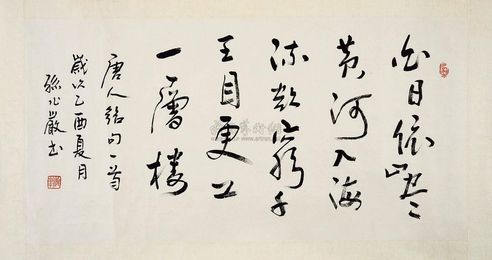 白日依山尽
黄河入海
流欲窮千
里目更上
一層楼
唐人絕句一首
歲次乙酉夏月
孫嚴书